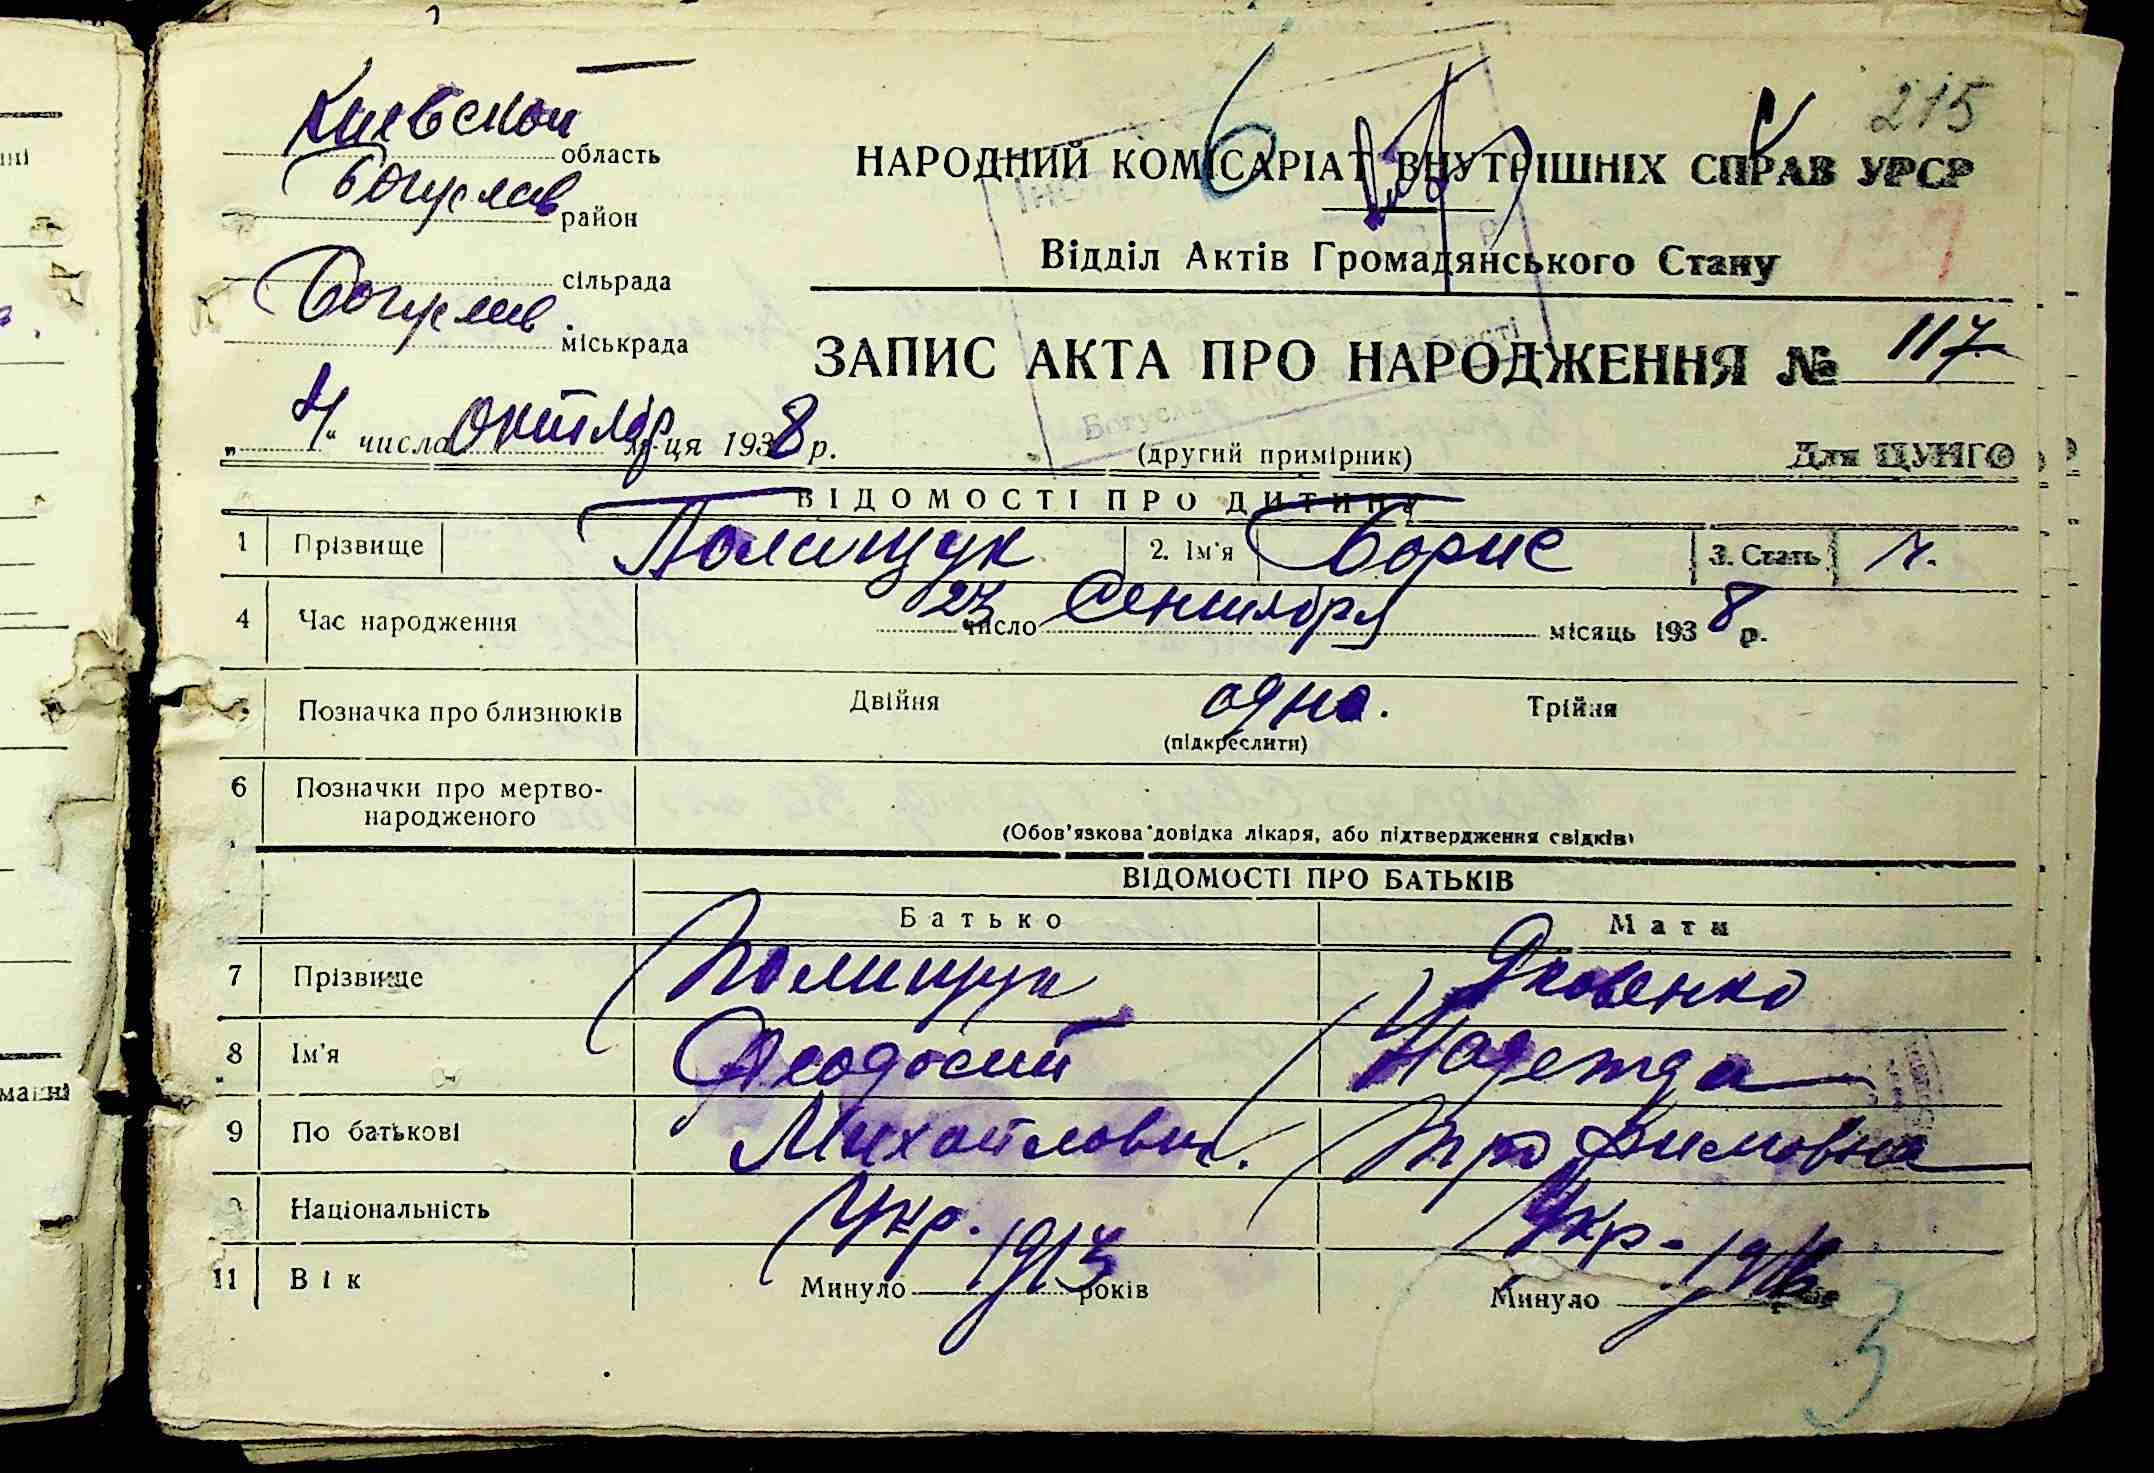 215
Киевской область
Богуслав район
сільрада
Богуслав. міськрада
НАРОДНИЙ КОМІСАРІАТ ВНУТРІШНІХ СПРАВ УРСР
Відділ Актів Громадянського Стану
ЗАПИС АКТА ПРО НАРОДЖЕННЯ № 117
„4" числа октября м-ця 1938 р.
(другий примірник)
Для ЦУНГО
ВІДОМОСТІ ПРО ДИТИНУ
1 Прізвище Полищук 2. Ім'я Борис 3. Стать м.
4 Час народження 23 число Сентября місяць 1938 р.
Позначка про близнюків Двійня одно. Трійня
(підкреслити)
6 Позначки про мертво-
народженого
(Обов'язкова довідка лікаря, або підтвердження свідків)
ВІДОМОСТІ ПРО БАТЬКІВ
Батько Мати
7 Прізвище Полищук Яковенко
8 Ім'я Феодосий Надежда
9 По батькові Михайлович. Трофимовна
Національність Укр. Укр.
11 Вік Минуло 1913 років Минуло 1916
3